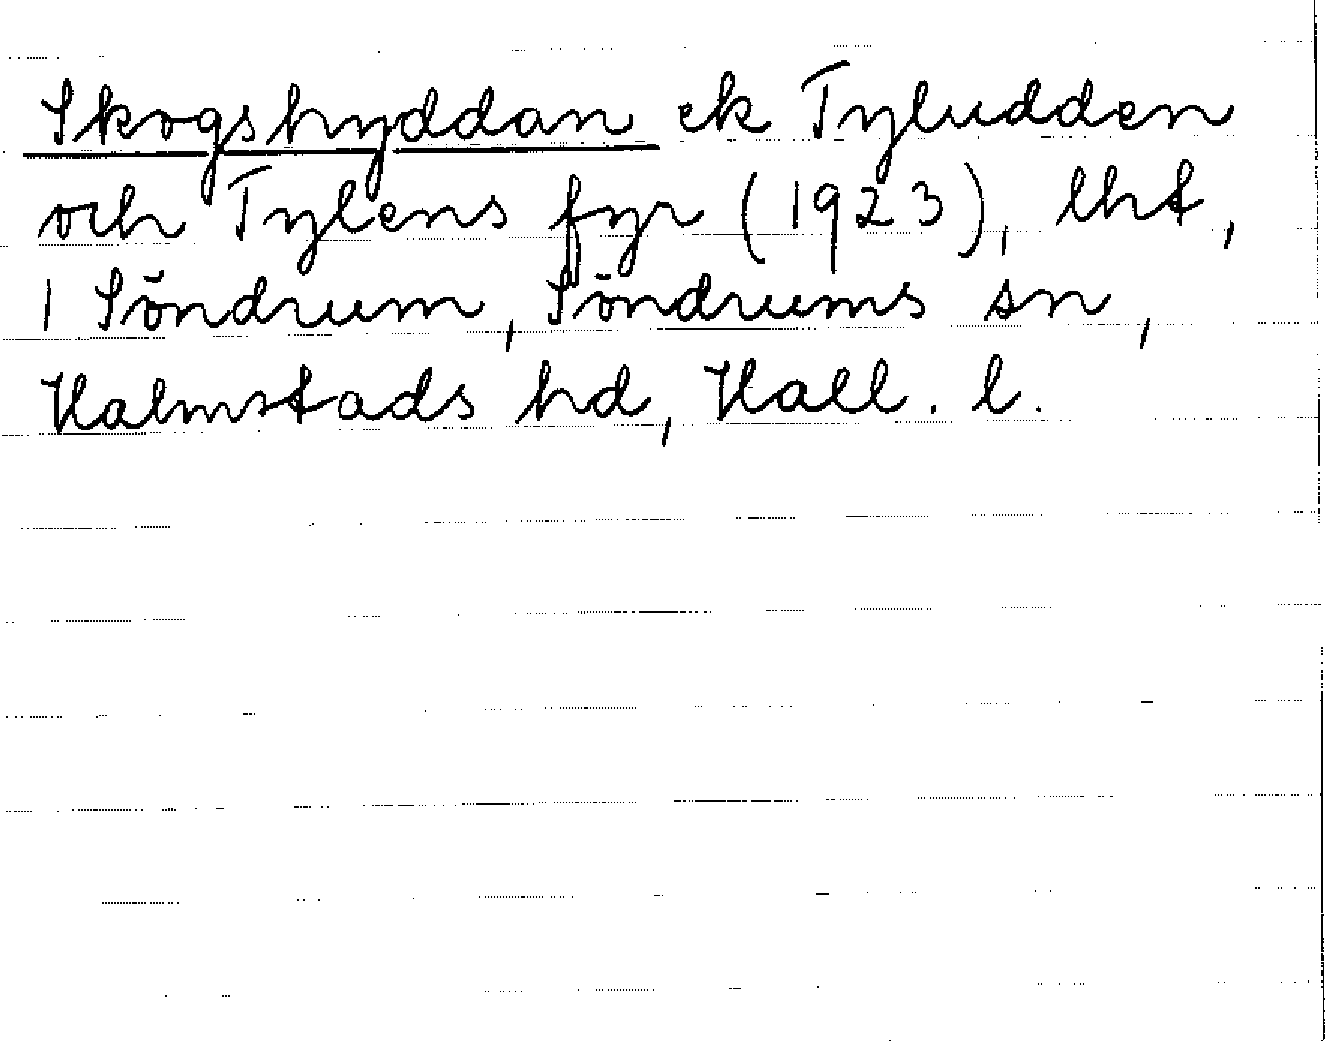 Skogshyddan ek Tyludden
och Tylens fyr (1923), lht,
1 Söndrum, Söndrums sn,
Halmstads hd, Hall. l.